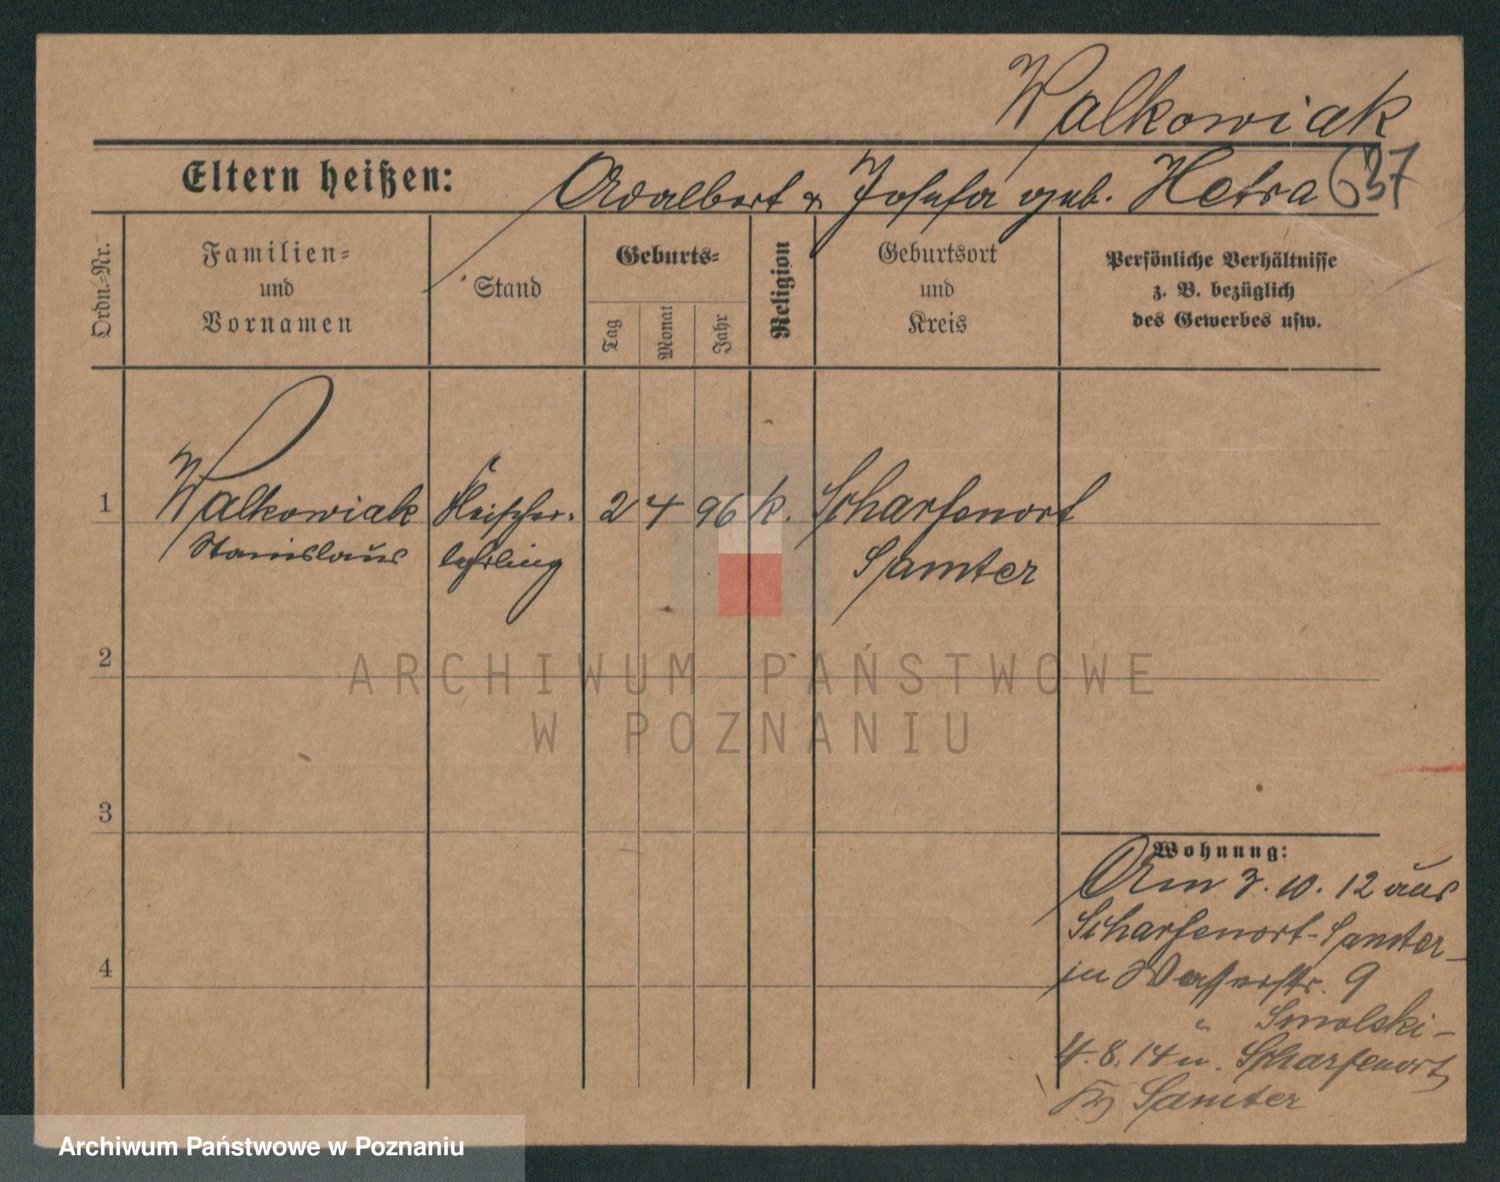 Walkowiak
Eltern heißen: Adalbert u Josefa geb. Hetra 637
Ordn.=Nr.
Familien=
und
Vornamen
Stand
Geburts=
Tag
Monat
Jahr
Religion
Geburtsort
und
Kreis
Persönliche Verhältnisse
z. B. bezüglich
des Gewerbes usw.
1 Walkowiak Fleischer- 2 4 96 k. Scharfenort
Stanislaus lehrling Samter
2
3
4
Wohnung:
Am 3. 10. 12 aus
Scharfenort-Samter
in Wasserstr. 9
" Smolski-
4. 8. 14 n. Scharfenort
Kr Samter
ARCHIWUM PAŃSTWOWE
W POZNANIU
Archiwum Państwowe w Poznaniu